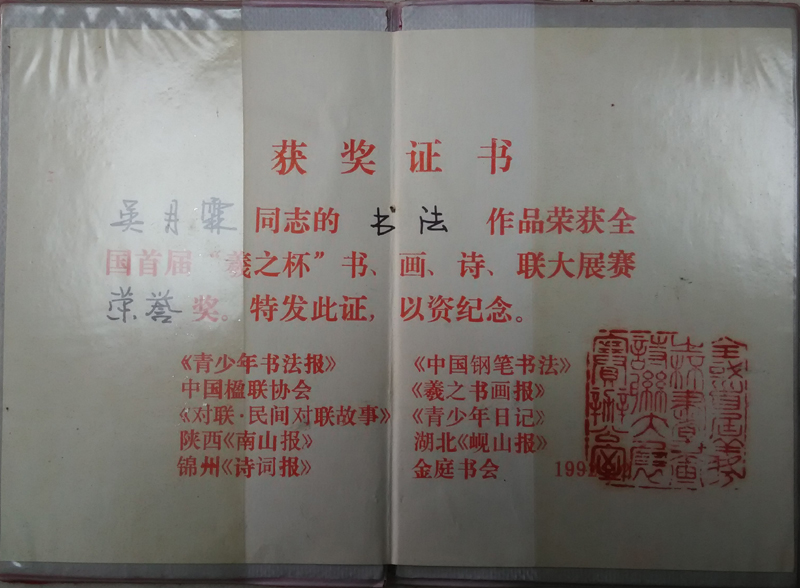 获奖证书
吴月霖 同志的 书法 作品荣获全
国首届“羲之杯”书、画、诗、联大展赛
荣誉 奖。特发此证，以资纪念。
《青少年书法报》 《中国钢笔书法》
中国楹联协会 《羲之书画报》
《对联·民间对联故事》 《青少年日记》
陕西《南山报》 湖北《岘山报》
锦州《诗词报》 金庭书会 199
全国首届羲
之杯书画
诗联大展
赛办公室